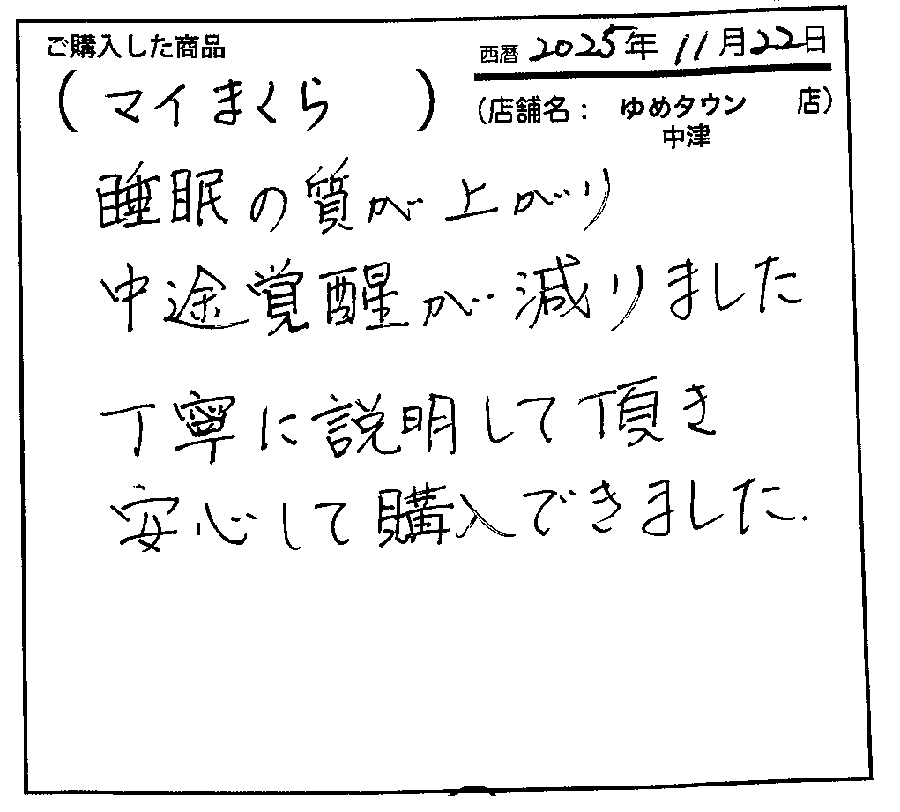 ご購入した商品
西暦 2025年 11月22日
(マイまくら)
(店舗名: ゆめタウン 店)
中津
睡眠の質が上がり
中途覚醒が減りました
丁寧に説明して頂き
安心して購入できました.